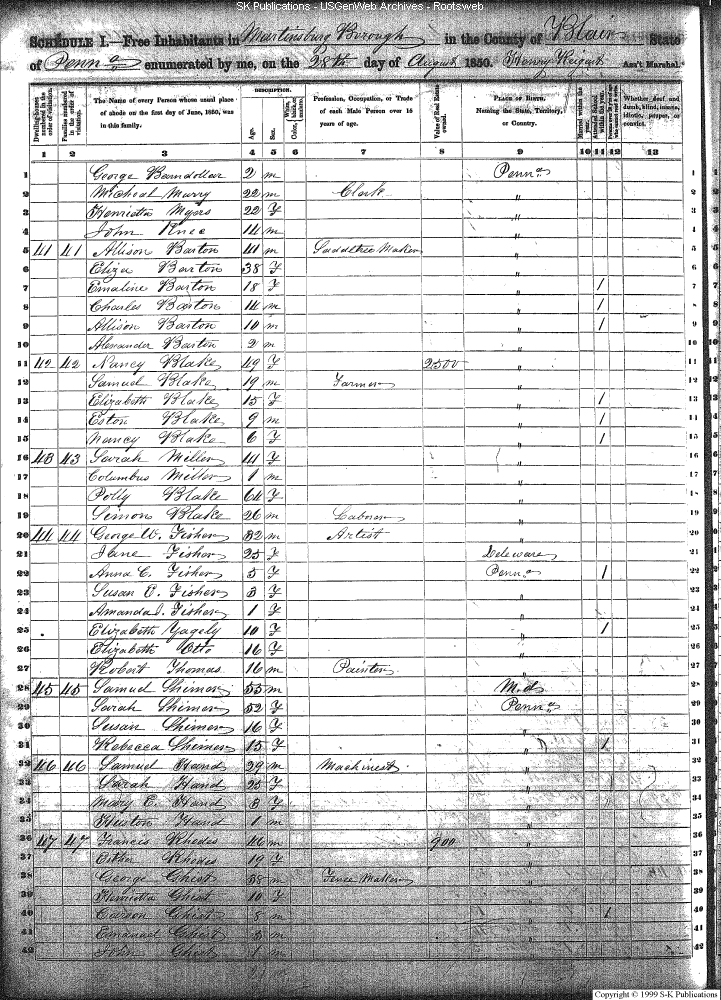 SK Publications - USGenWeb Archives - Rootsweb
SCHEDULE I.—Free Inhabitants in Martinsburg Borough in the County of Blair State
of Penna enumerated by me, on the 28th day of August 1850. Henry Ass't Marshal.
Dwelling-houses numbered in the order of visitation.
Families numbered in the order of visitation.
The Name of every Person whose usual place of abode on the first day of June, 1850, was in this family.
DESCRIPTION.
Age.
Sex.
Color, White, black, or mulatto.
Profession, Occupation, or Trade of each Male Person over 15 years of age.
Value of Real Estate owned.
PLACE OF BIRTH. Naming the State, Territory, or Country.
Married within the year.
Whether deaf and dumb, blind, insane, idiotic, pauper, or convict.
1 2 3 4 5 6 7 8 9 10 11 12 13
1 George 2 m Penna 1
2 Micheal Murry 22 m Clark " 2
3 Henrietta Myers 22 F " 3
4 John Knee 14 m " 4
5 41 41 Allison Barton 41 m Saddletree Maker " 5
6 Eliza Barton 38 F " 6
7 Emaline Barton 18 F " / 7
8 Charles Barton 14 m " / 8
9 Allison Barton 10 m " / 9
10 Alexander Barton 2 m " 10
11 42 42 Nancy Blake 49 F 2500 " 11
12 Samuel Blake 19 m Farmer " 12
13 Elizabeth Blake 15 F " / 13
14 Eston Blake 9 m " / 14
15 Nancy Blake 6 F " / 15
16 43 43 Sarah Miller 41 F " 16
17 Columbus Miller 1 m " 17
18 Polly Blake 64 F " 18
19 Simon Blake 26 m Laborer " 19
20 44 44 George W. Fisher 32 m Artist " 20
21 Jane Fisher 25 F Deleware 21
22 Anna C. Fisher 5 F Penna / 22
23 Susan E. Fisher 3 F " 23
24 Amanda J. Fisher 1 F " 24
25 Elizabeth Yagely 10 F " / 25
26 Elizabeth Otto 16 F " 26
27 Robert Thomas 16 m Painter " 27
28 45 45 Samuel Shimer 55 m M.d 28
29 Sarah Shimer 52 F Penna 29
30 Susan Shimer 16 F " 30
31 Rebecca Shimer 15 F " / 31
32 46 46 Samuel Hand 29 m Machinest " 32
33 Sarah Hand 25 F " 33
34 Mary E. Hand 3 F " 34
35 Huston Hand 1 m " 35
36 47 47 Francis Rhodes 46 m 900 " 36
37 Rhodes 19 F " 37
38 George Ghist 38 m Fence Maker " 38
39 Henrietta Ghist 10 F " 39
40 Carson Ghist 8 m " / 40
41 Emanuel Ghist m " 41
42 John Ghist 1 m " 42
Copyright © 1999 S-K Publications